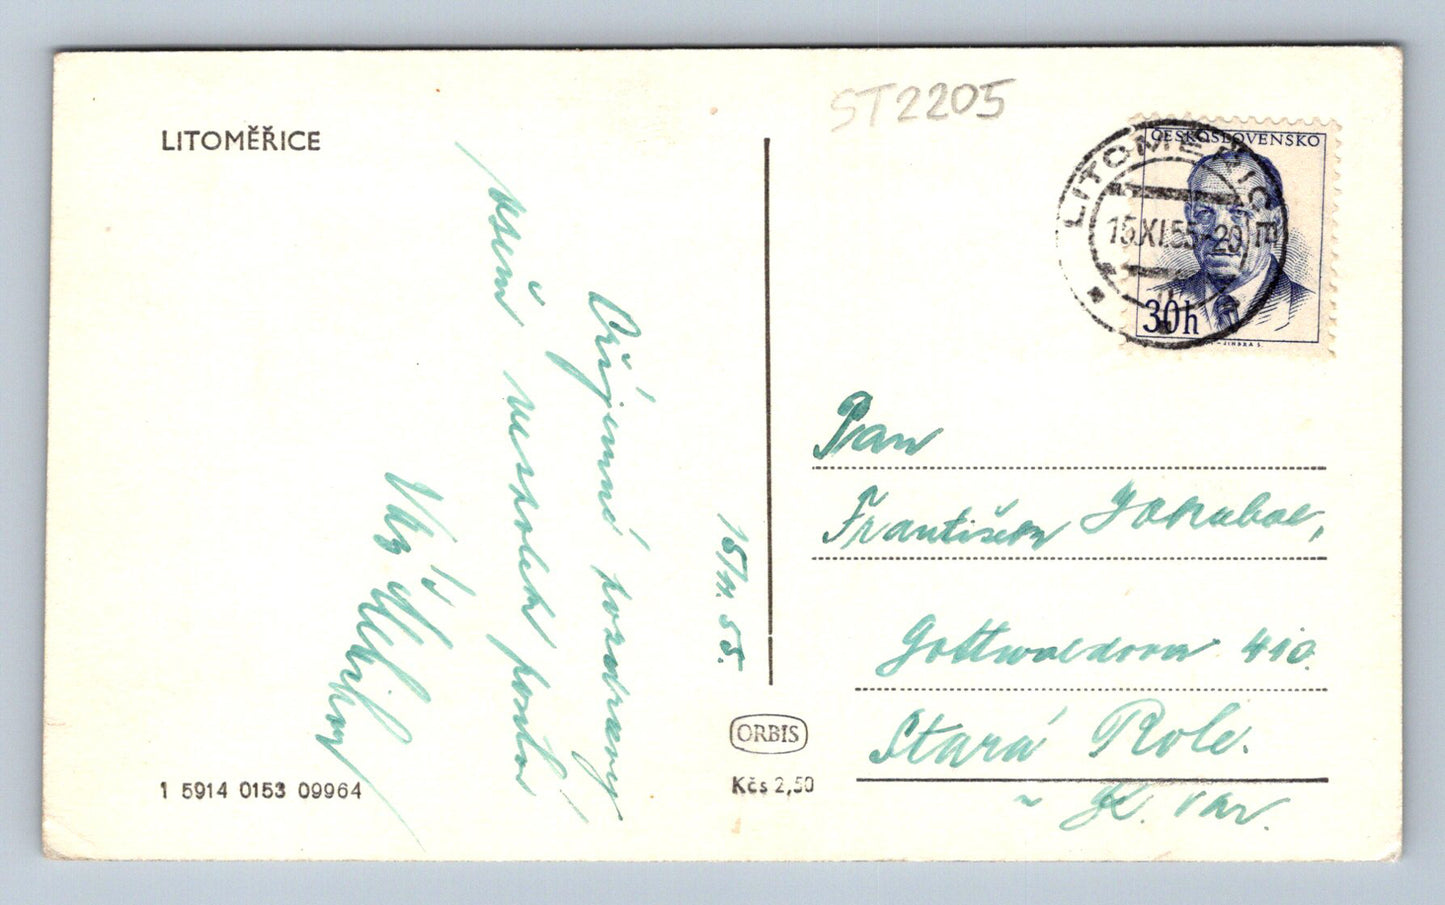 LITOMĚŘICE
ST2205
ČESKOSLOVENSKO
LITOMĚŘICE
15.XI.55-20
30h
JINDRA S.
15/XI. 55.
Příjemné pozdravy
všem
Váš
Pan
František
Gottwaldova 410.
Stará Role.
K. Var.
ORBIS
Kčs 2,50
1 5914 0153 09964